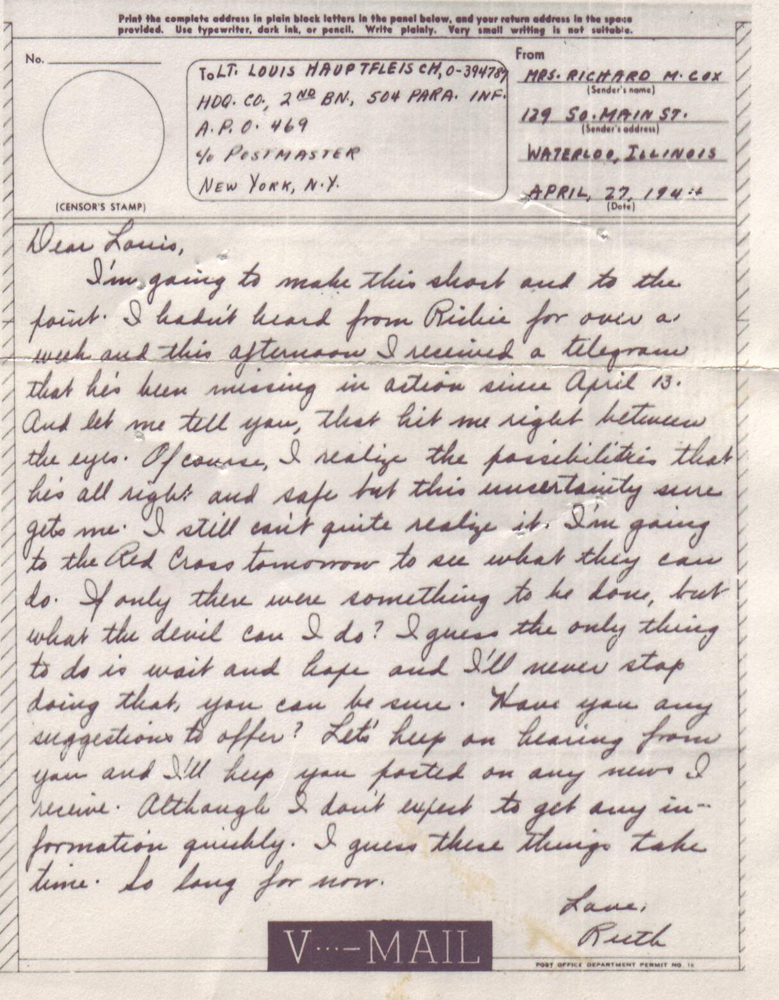 Print the complete address in plain block letters in the panel below, and your return address in the space
provided. Use typewriter, dark ink, or pencil. Write plainly. Very small writing is not suitable.
No.
(CENSOR'S STAMP)
To LT. LOUIS HAUPTFLEISCH, O-394789
HDQ. CO., 2ND BN., 504 PARA. INF.
A.P.O. 469
c/o POSTMASTER
NEW YORK, N.Y.
From
MRS. RICHARD M. COX
(Sender's name)
129 SO. MAIN ST.
(Sender's address)
WATERLOO, ILLINOIS
APRIL, 27, 1944
(Date)
Dear Louis,
I'm going to make this short and to the
point. I hadn't heard from Richie for over a
week and this afternoon I received a telegram
that he's been missing in action since April 13.
And let me tell you, that hit me right between
the eyes. Of course, I realize the possibilities that
he's all right and safe but this uncertainty sure
gets me. I still can't quite realize it. I'm going
to the Red Cross tomorrow to see what they can
do. If only there were something to be done, but
what the devil can I do? I guess the only thing
to do is wait and hope and I'll never stop
doing that, you can be sure. Have you any
suggestions to offer? Let's keep on hearing from
you and I'll keep you posted on any news I
receive. Although I don't expect to get any in-
formation quickly. I guess these things take
time. So long for now.
Love,
Ruth
V···—MAIL
POST OFFICE DEPARTMENT PERMIT NO. 16